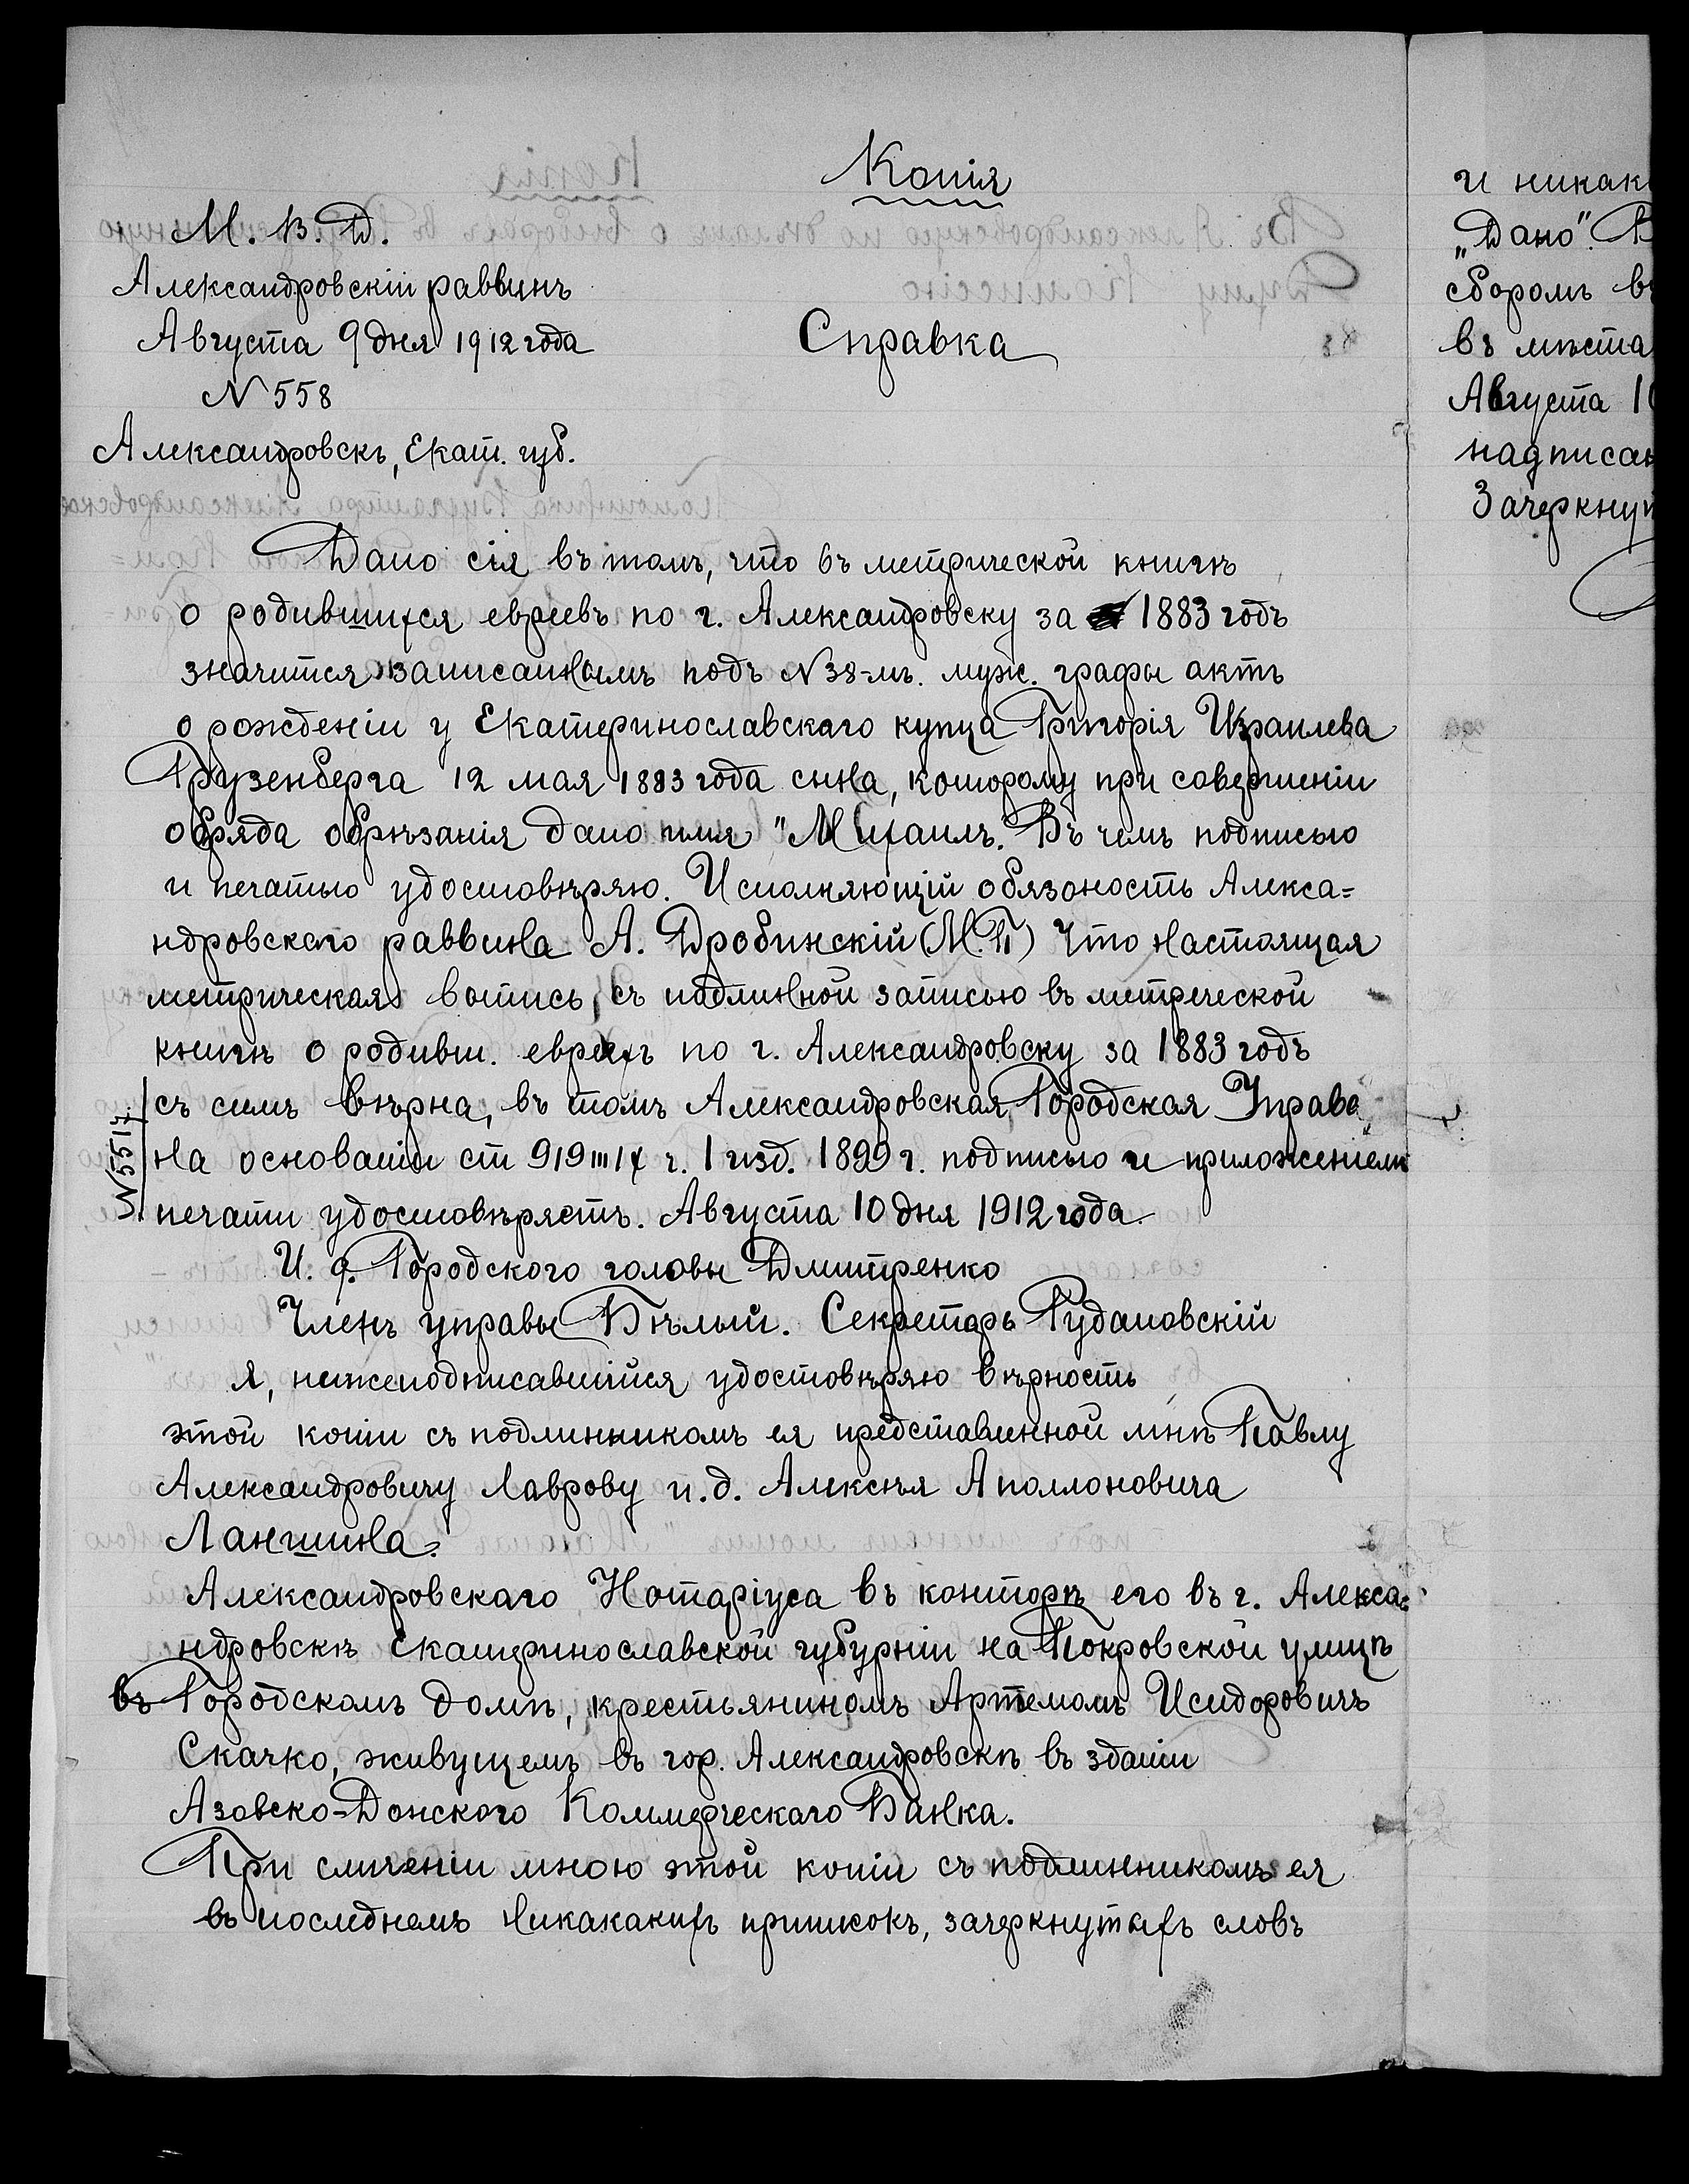 Копія
М. В. Д.
Александровскій раввинъ
Августа 9 дня 1912 года
Справка
N 558
Александровскъ, Екат. губ.
Дано сія въ томъ, что въ метрической книгѣ
о родившихся евреевъ по г. Александровску за 1883 годъ
значится записаннымъ подъ N 38-мъ. муж. графы актъ
о рожденіи у Екатеринославскаго купца Григорія Израилева
Грузенберга 12 мая 1883 года сына, которому при совершеніи
обряда обрѣзанія дано имя "Михаилъ". Въ чемъ подписью
и печатью удостовѣряю. Исполняющій обязоность Алекса=
ндровскаго раввина А. Дробинскій (М. П.) Что настоящая
метрическая выпись, съ подлинной записью въ метреческой
книгѣ о родивш. евреяхъ по г. Александровску за 1883 годъ
съ симъ вѣрна, въ томъ Александровская Городская Управа
на основаніи ст 919 III IX ч. I изд. 1899 г. подписью и приложеніемъ
печати удостовѣряетъ. Августа 10 дня 1912 года.
N 5517
И. д. Городского головы Дмитренко
Членъ управы Бѣлый. Секретарь Рудановскій
Я, нижеподписавшійся удостовѣряю вѣрность
этой копіи съ подлинникомъ ея представленной мнѣ Павлу
Александровичу Лаврову и.д. Алексѣя Аполлоновича
Ланшина.
Александровскаго Нотаріуса въ конторѣ его въ г. Алекса=
ндровскѣ Екатеринославской губурніи на Покровской улицѣ
въ Городскомъ домѣ, крестьяниномъ Артемомъ Исидоровичъ
Скачко, живущемъ въ гор. Александровскѣ въ зданіи
Азовско-Донского Коммерческаго Банка.
При сличеніи мною этой копіи съ подлинникомъ ея
въ последнемъ никакакихъ приписокъ, зачеркнутыхъ словъ
и никак
„Дано". В
сборомъ въ
въ мѣста
Августа 1
надписан
Зачеркнут